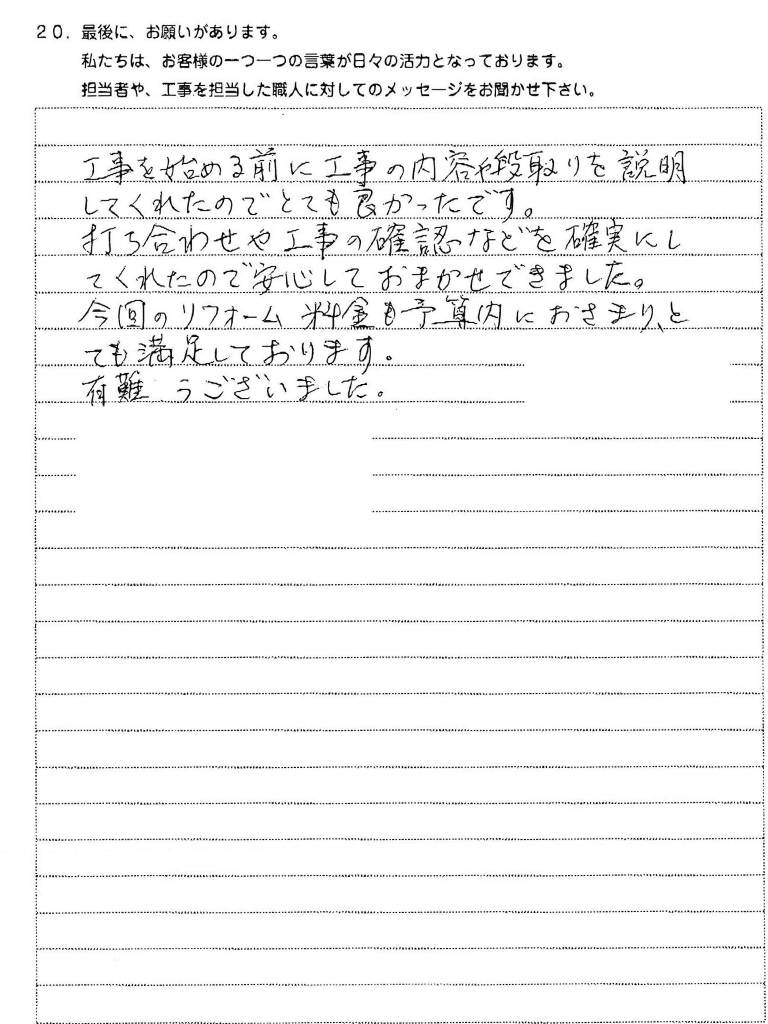 20. 最後に、お願いがあります。
私たちは、お客様の一つ一つの言葉が日々の活力となっております。
担当者や、工事を担当した職人に対してのメッセージをお聞かせ下さい。
工事を始める前に工事の内容や段取りを説明
してくれたのでとても良かったです。
打ち合わせや工事の確認などを確実にし
てくれたので安心しておまかせできました。
今回のリフォーム料金も予算内におさまり、と
ても満足しております。
有難うございました。